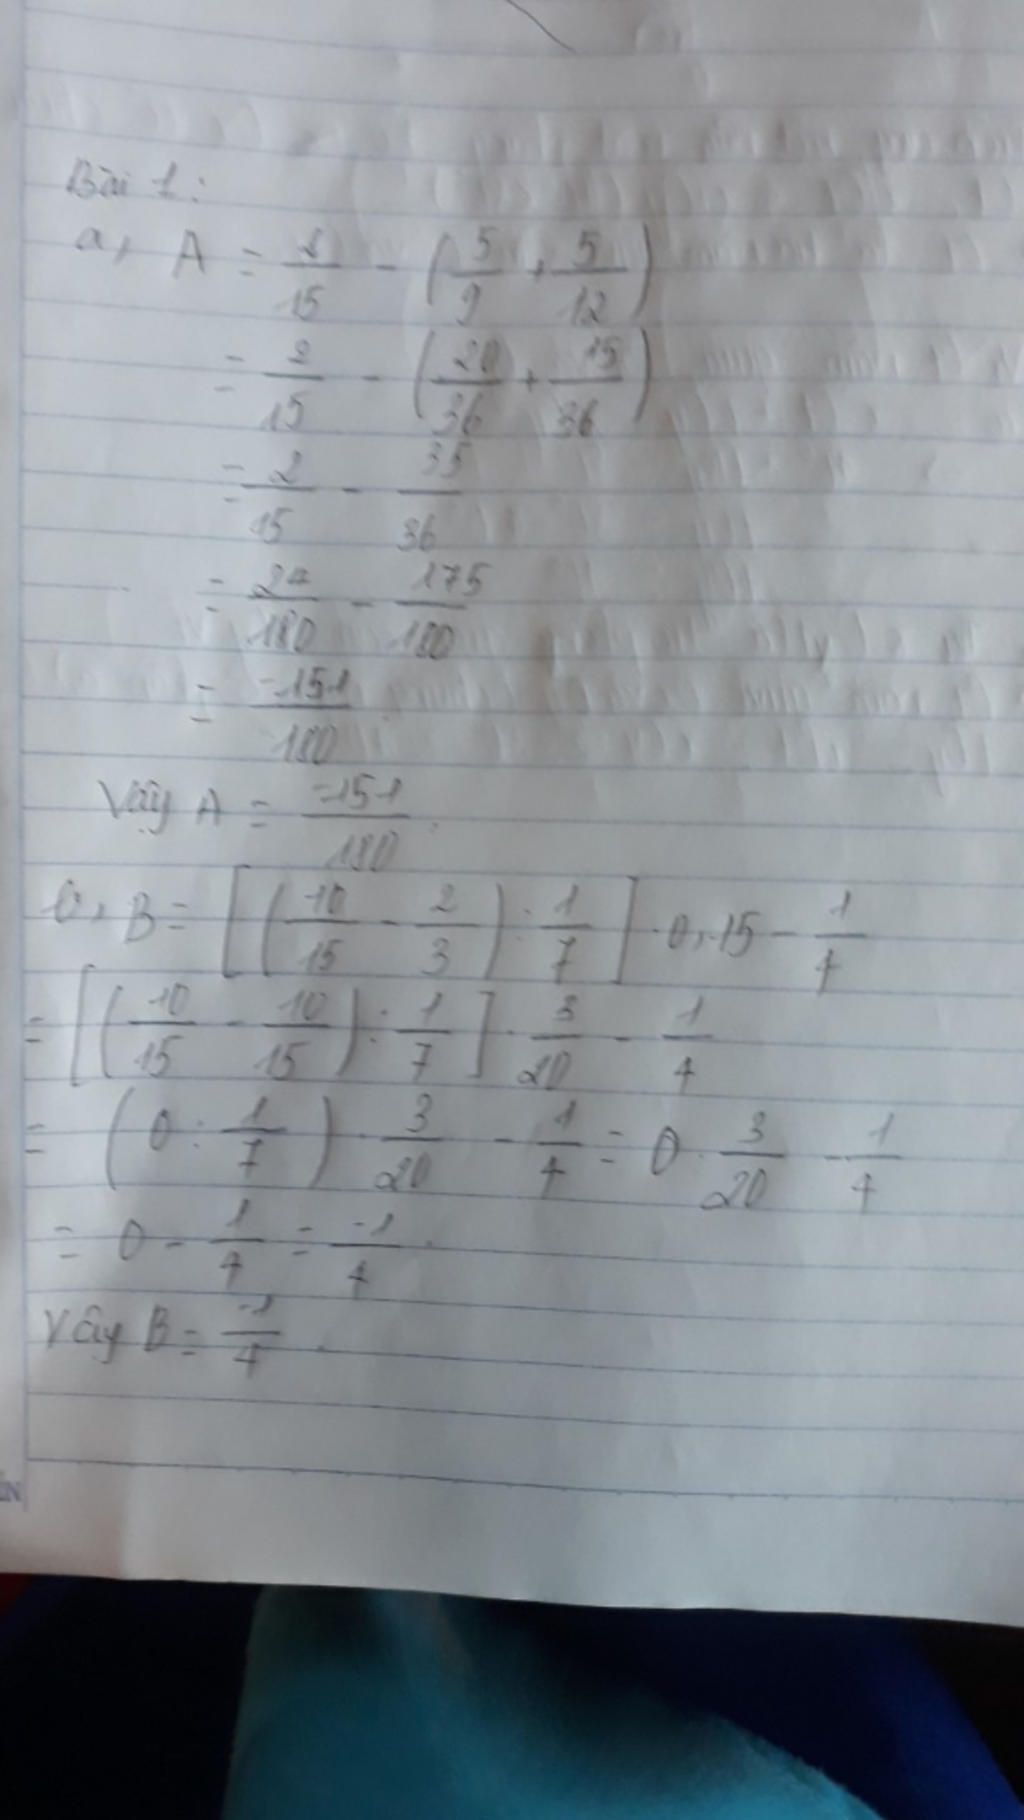 Bài 1:
a, A = 2/15 - (5/9 + 5/12)
= 2/15 - (20/36 + 15/36)
= 2/15 - 35/36
= 24/180 - 175/180
= -151/180
Vậy A = -151/180.
b, B = [(10/15 - 2/3) : 1/7] . 0,15 - 1/4
= [(10/15 - 10/15) : 1/7] . 3/20 - 1/4
= (0 : 1/7) . 3/20 - 1/4 = 0 . 3/20 - 1/4
= 0 - 1/4 = -1/4.
Vậy B = -1/4.